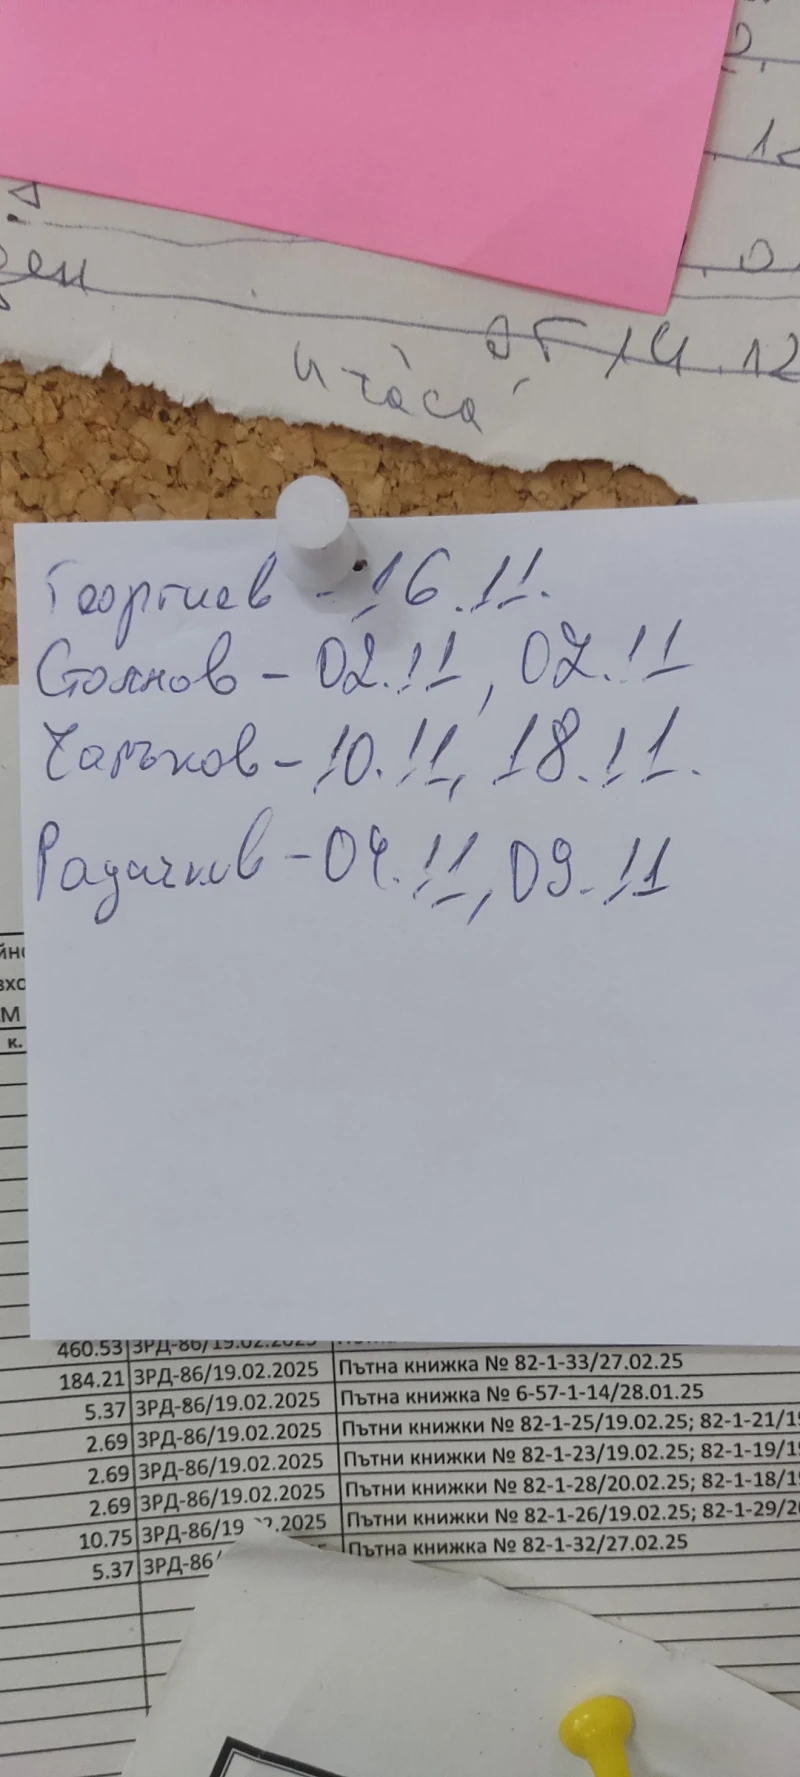 от 14.12
часа
Георгиев - 16.11.
Стоянов - 02.11, 07.11
Чарков - 10.11, 18.11.
Радичков - 04.11, 09.11
М
к.
460.53 ЗРД-86/19.02.2025
184.21 ЗРД-86/19.02.2025 Пътна книжка № 82-1-33/27.02.25
5.37 ЗРД-86/19.02.2025 Пътна книжка № 6-57-1-14/28.01.25
2.69 ЗРД-86/19.02.2025 Пътни книжки № 82-1-25/19.02.25; 82-1-21/19
2.69 ЗРД-86/19.02.2025 Пътни книжки № 82-1-23/19.02.25; 82-1-19/19
2.69 ЗРД-86/19.02.2025 Пътни книжки № 82-1-28/20.02.25; 82-1-18/19
10.75 ЗРД-86/19 .2025 Пътни книжки № 82-1-26/19.02.25; 82-1-29/20
5.37 ЗРД-86/ Пътна книжка № 82-1-32/27.02.25